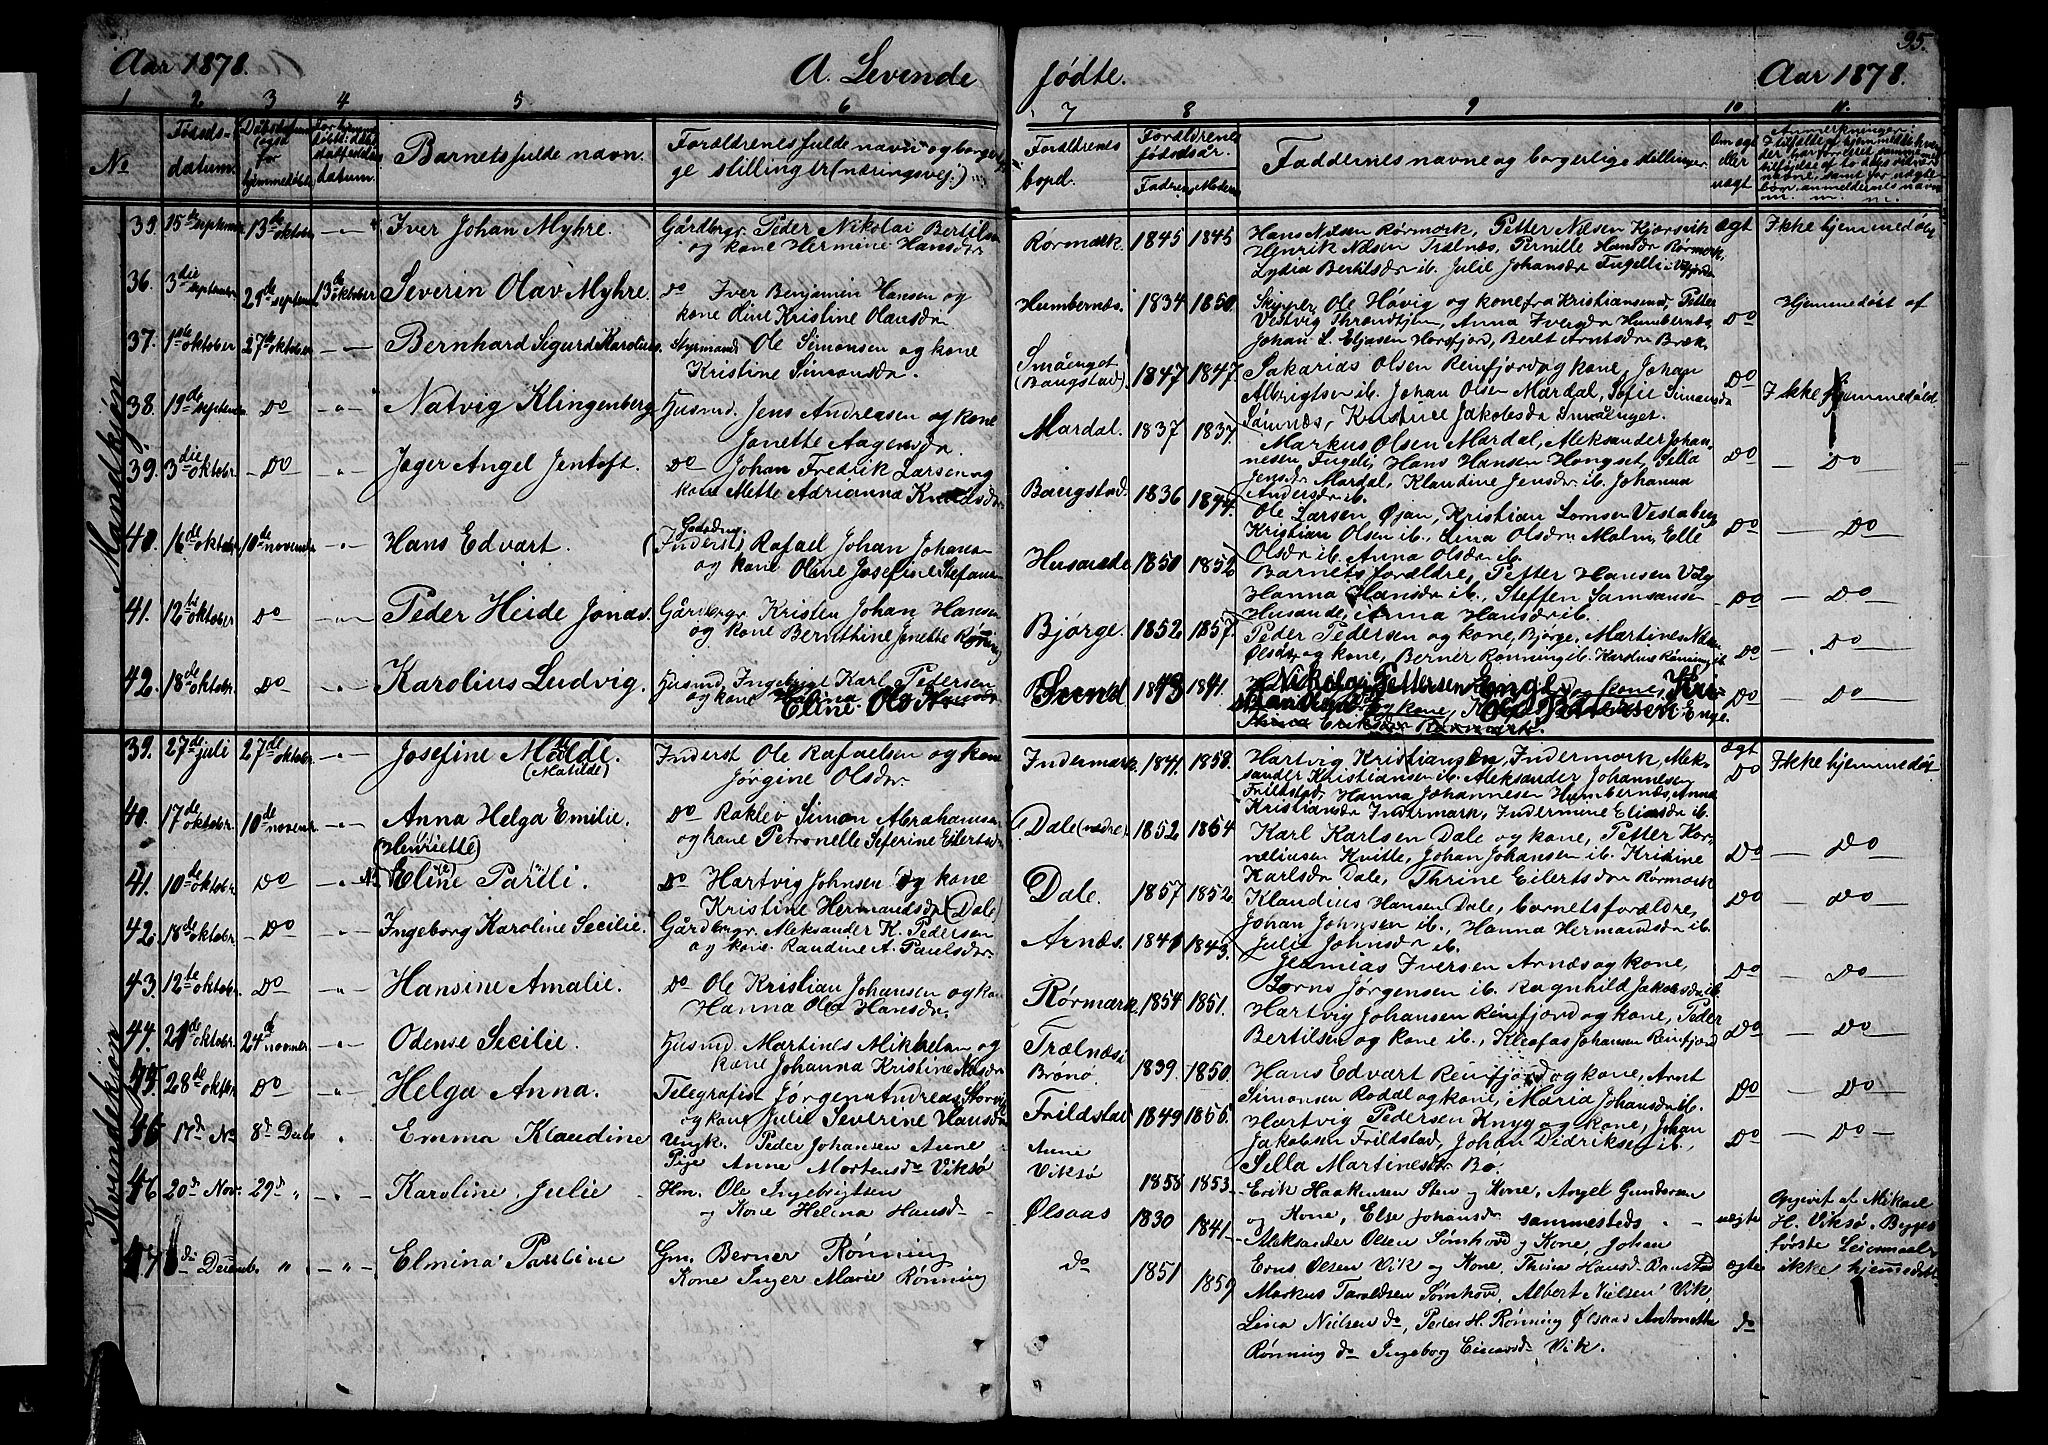 95.
Aar 1878. A. Levende fødte. Aar 1878.
1 2 3 4 5 6 7 8 9 10 11.
No Fødsdatum. Barnets fulde navn. Forældrenes fulde navn og borgerlige stillinger (næringsvej.) Forældrenes bopel. Forældrenes fødselsår. Fadren Modren Faddernes navne og borgerlige stillinger. Om ægt eller uægt
Mandkjøn
39. 15de september 13de oktober — " Iver Johan Myhre. Gårdbrgr Peder Nikolai Bertilsen Rørmark. 1845 1845 Hans Nilsen Rørmark, Petter Nilsen Kjørsvik ægt Ikke hjemmedøbt
og kone Hermine Hansdr. Henrik Nilsen Trælnæs, Pernille Hansdr Rørmark,
Lydia Bertilsdr ib. Julie Johansdr Fugelli i Velfjorden
36. 3die september 29de september 13de oktober Severin Olav Myhre. Do Iver Benjamin Hansen og Humbernæs. 1834 1850 Skipper Ole Høvig og kone fra Kristiansund, Petter Do Hjemmedøbt af
kone Oline Kristine Olausdr. Vestvig Throndhjem, Anna Iversdr Humbernæs
Johan L. Eljasen Horsfjor, Beret Arntsdr Bræk.
37. 1ste oktober 27de oktober — — Bernhard Sigurd Karolius. Styrmand Ole Simonsen og kone Småenget (Bangstad). 1847 1847 Sakarias Olsen Reinfjord og kone, Johan Do Ikke hjemmedøbt.
Kristine Simonsdr. Albrigtsen ib. Johan Olsen Mardal, Sofie Simonsdr
Sømnæs, Kristine Jakobsdr Smålnget.
38. 19de september Do — " — Natvig Klingenberg. Husmd. Jens Andreasen og kone Mardal. 1837 1837 Markus Olsen Mardal, Aleksander Johan- Do — Do
Janette Aagensdr. nesen Fugeli, Hans Hansen Hongset, Sella
Jensdr Mardal, Klaudine Jensdr ib. Johanna
Andersdr ib.
39. 3die oktober — Do — " Jager Angel Jentoft. Do Johan Fredrik Larsen og Bangstad. 1836 1874. Ole Larsen Øjan, Kristian Lornsen Vestaberg Do — Do
kone Mette Adrianna Knudsdr Kristian Olsen ib., Lina Olsdr Malm, Elle
Olsdr ib. Anna Olsdr ib.
40. 16de oktober 10de november — " — Hans Edvart. (Inderst) Rafael Johan Johansen Husande 1850 1852 Barnets forældre, Petter Hansen Valg Do — Do —
og kone Oline Josefine Stefansen Hanna Hansdr ib., Steffen Samsonsen
Husande, Anna Hansdr ib.
41. 12te oktober Do — " — Peder Heide Jonas. Gårdbrgr Kristen Johan Hansen Bjørge. 1852 1857. Peder Pedersen og kone, Bjørge, Martines Nilsen Do — Do —
og kone Bernthine Janette Rønning Olsås og kone, Berner Rønning ib. Karolius Rønning ib.
42. 18de oktober. Do — " — Karolius Ludvig. Husmd. Ingebrigt Karl Pedersen Sund 1843 1841. Nikolai Pettersen Enge Do — Do
og kone Eline Ols Ole Pettersen Enge
Kvindekjøn
39. 27de juli 27de oktober. — " — Josefine Milde. (Matilde) Inderst Ole Rafaelsen og kone Indermark. 1841. 1858. Hartvig Kristiansen Indermark, Alek- ægt Do Ikke hjemmedøbt
Jørgine Olsdr. sander Kristiansen ib. Aleksander Johannesen
Frilstad, Hanna Johannesen Humbernæs, Anna
Kristiansdr Indermark, Indermine Eliasdr ib.
40. 17de oktober. 10de novembr — " — Anna Helga Emilie. Do Raklev Simon Abrahamsen Dale (nedre). 1852. 1854 Karl Karlsen Dale og kone, Petter Kor- Do — Do
(Henriette) og kone Petronelle Seferine Eilertsdr neliusen Kvitle, Johan Johansen ib. Kristine
Karlsdr Dale, Thrine Eilertsdr Rørmark
41. 10de oktober Do — " Eline Parëli. Do Hartvig Johnsen og kone Dale. 1857 1852 Klaudius Hansen Dale, barnets forældre, Do — Do —
Kristine Hermandsdr (Dale) Johan Johnsen ib., Hanna Hermansdr ib.
Julie Johnsdr ib.
42. 18de oktober. — Do — " Ingeborg Karoline Secilie. Gårdbrgr. Aleksander K. Pedersen Arnæs. 1841 1843. Jeremias Iversen Arnæs og kone, Do — Do —
og kone Raudine A. Paulsdr. Lorns Jørgensen ib. Ragnhild Jakobsdr ib.
43. 12te oktober. Do — " — Hansine Amalie. Do Ole Kristian Johansen og kone Rørmark. 1854 1851. Hartvig Johansen Reinfjord og kone, Peder Do — Do —
Hanna Ole Hansdr. Bertilsen og kone ib., Kleofas Johansen Reinfjord
44. 21de oktobr. 24de novembr. — " — Odense Secilie. Husmd Martines Mikkelsen og Trælnæs i Brønø. 1839. 1850. Hans Edvart Reinfjord og kone, Arnt Do — Do —
kone Johanna Kristine Nilsdr Simonsen Roddal og kone, Maria Johansdr ib.
45. 28de oktbr. Do " Helga Anna. Telegrafist Jørgen Andreas Storvig Frildstad 1849 1855. Hartvig Pedersen Knyg og kone, Johan Do — Do —
og kone Julie Severine Hansdr Jakobsen Frildstad, Johan Didriksen ib.
Sella Martinesdr Bo.
46 17d No 8d Decb " Emma Klaudine Ungk. Peder Johansen Anne Anne Viksø 1858 1853. Erik Haakensen Sten og Kone, Angel Gundersen uægte Opgivet af Mikael
Pige Anne Mortensdr Viksø og Kone, Else Johansdr sammesteds H. Viksø. Begges
første Leiermaal
46 20d Nov. 29d " — " — Karoline Julie Hm. Ole Ingebrigtsen Ølsaas 1830 1841 Aleksander Olsen Sømhovd og Kone, Johan ægte ikke hjemmedøbt
og Kone Helena Hansd Erns Olsen Vik og Kone, Thina Hansd Ranstad
Markus Taraldsen Sømhovd, Albert Nielsen Vik
47 d Decemb. " — " — Elmina Pauline Gm. Berner Rønning do 1851 1859 Lina Nielsen do, Peder H. Rønning Ølsaas Antonette do
Kone Inger Marie Rønning Rønning do Ingeborg Einarsd Vik.